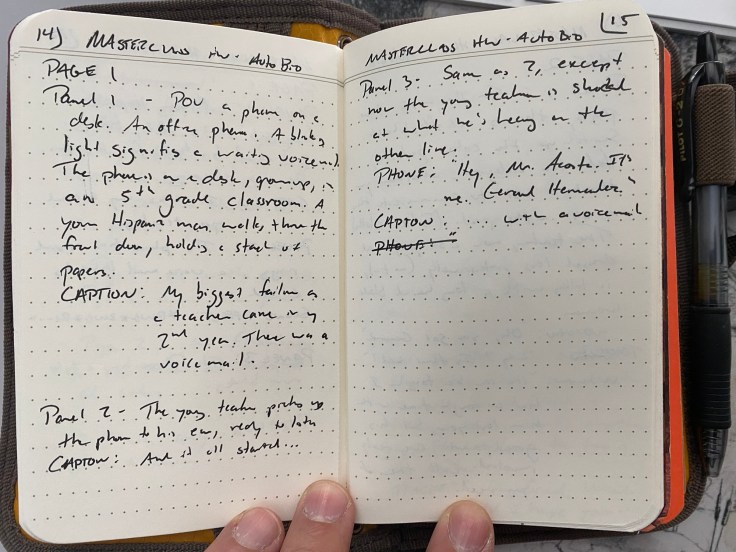 14) MASTERCLASS HW - AutoBio
PAGE 1
Panel 1 - POV a phone on a
desk. An office phone. A blinking
light signifies a waiting voicemail.
The phone is on a desk, grownup, in
an 5th grade classroom. A
young Hispanic man walks through the
front door, holding a stack of
papers.
CAPTION: My biggest failure as
a teacher came in my
2nd year. There was a
voicemail.
Panel 2 - The young teacher picks up
the phone to his ear, ready to listen
CAPTION: And it all started...
15
MASTERCLASS HW - AutoBio
Panel 3 - Same as 2, except
now the young teacher is shocked
at what he's hearing on the
other line.
PHONE: "Hey, Mr. Acosta. It's
me. Gerard Hernandez."
CAPTION: ... with a voicemail
PHONE: "
PILOT G-2